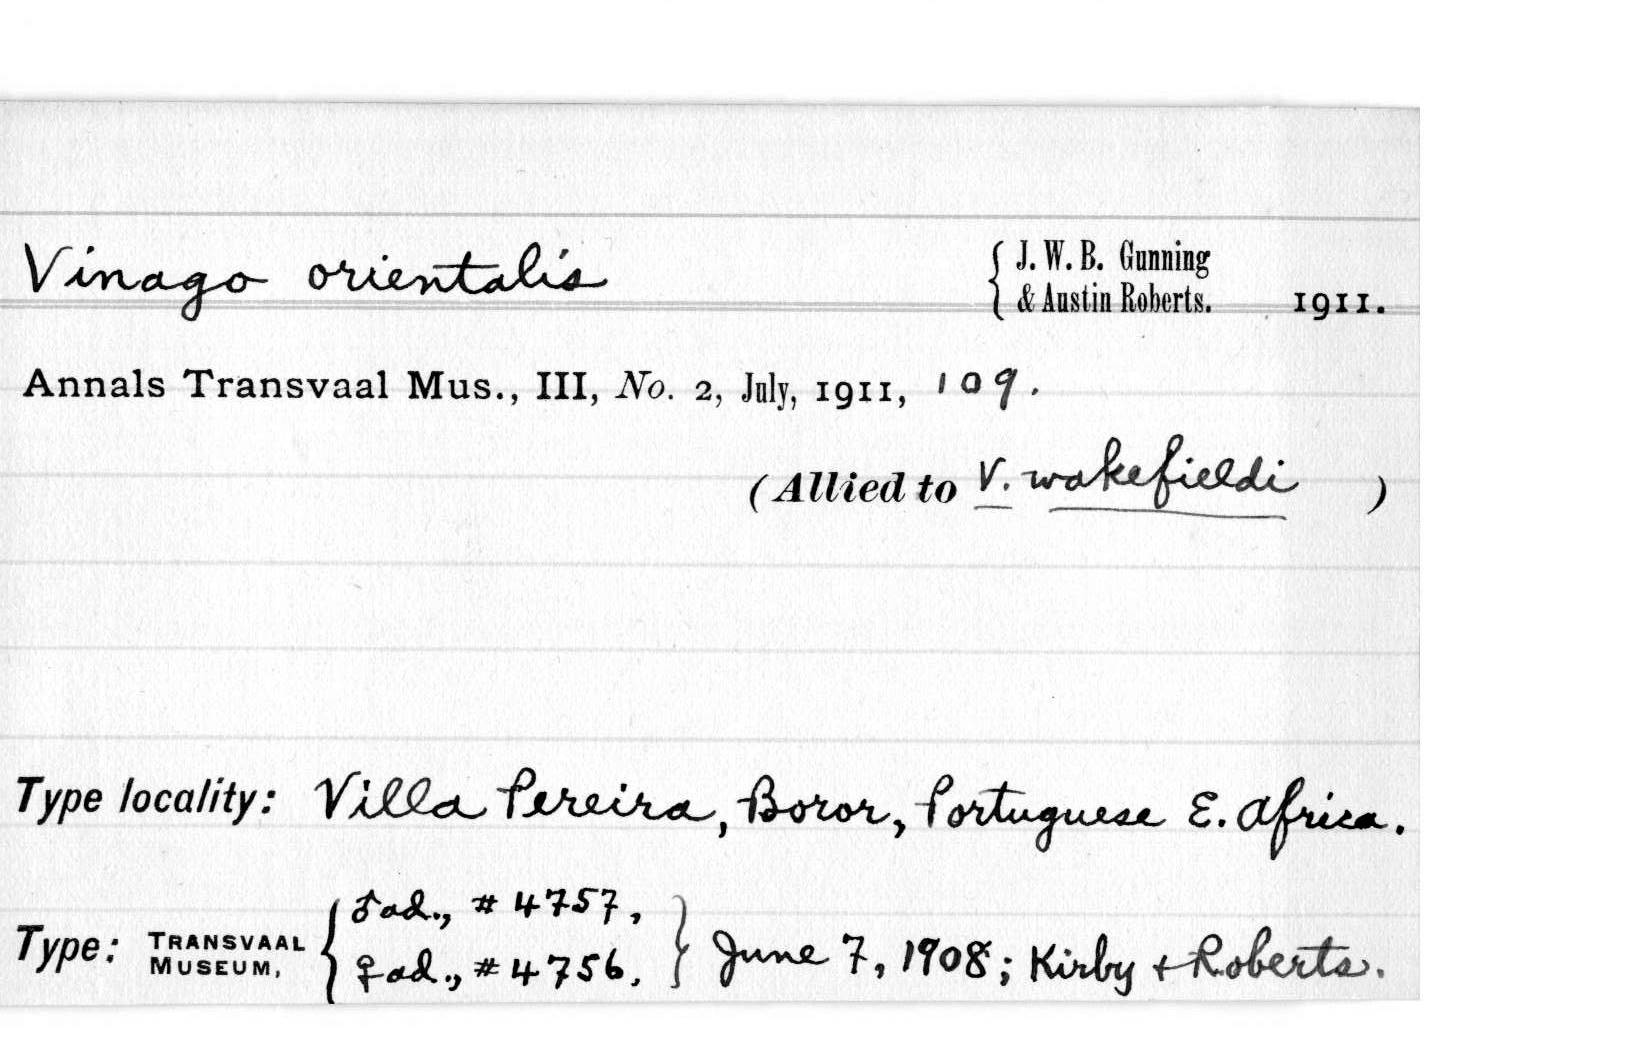 Vinago orientalis { J. W. B. Gunning
& Austin Roberts. 1911.
Annals Transvaal Mus., III, No. 2, July, 1911, 109.
(Allied to V. wakefieldi )
Type locality: Villa Pereira, Boror, Portuguese E. Africa.
Type: TRANSVAAL MUSEUM, { ♂ad., # 4757,
♀ad., # 4756, } June 7, 1908; Kirby + Roberts.